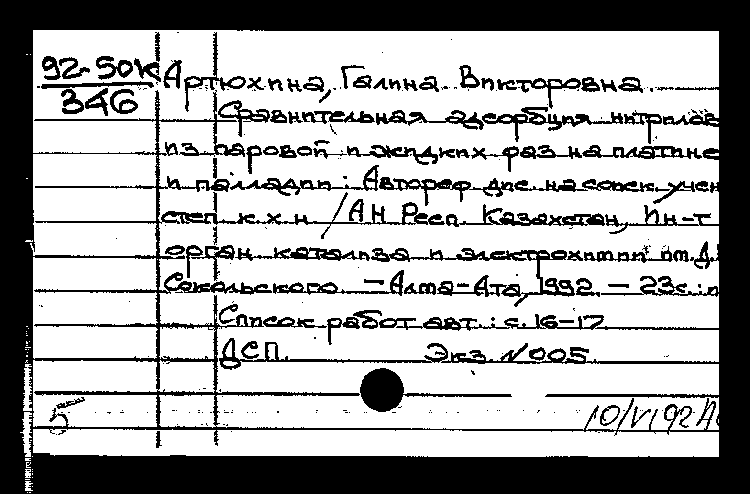 92-50К Артюхина, Галина Викторовна.
346
Сравнительная адсорбция нитрилов
из паровой и жидких фаз на платине
и палладии : Автореф дис. на соиск учен
степ. к. х. н. / АН Респ. Казахстан, Ин-т
орган катализа и электрохимии им. Д.
Сокольского. — Алма-Ата, 1992. — 23с.:
Список работ авт. : с. 16-17.
ДСП. Экз. N 005.
5 10/VI 92